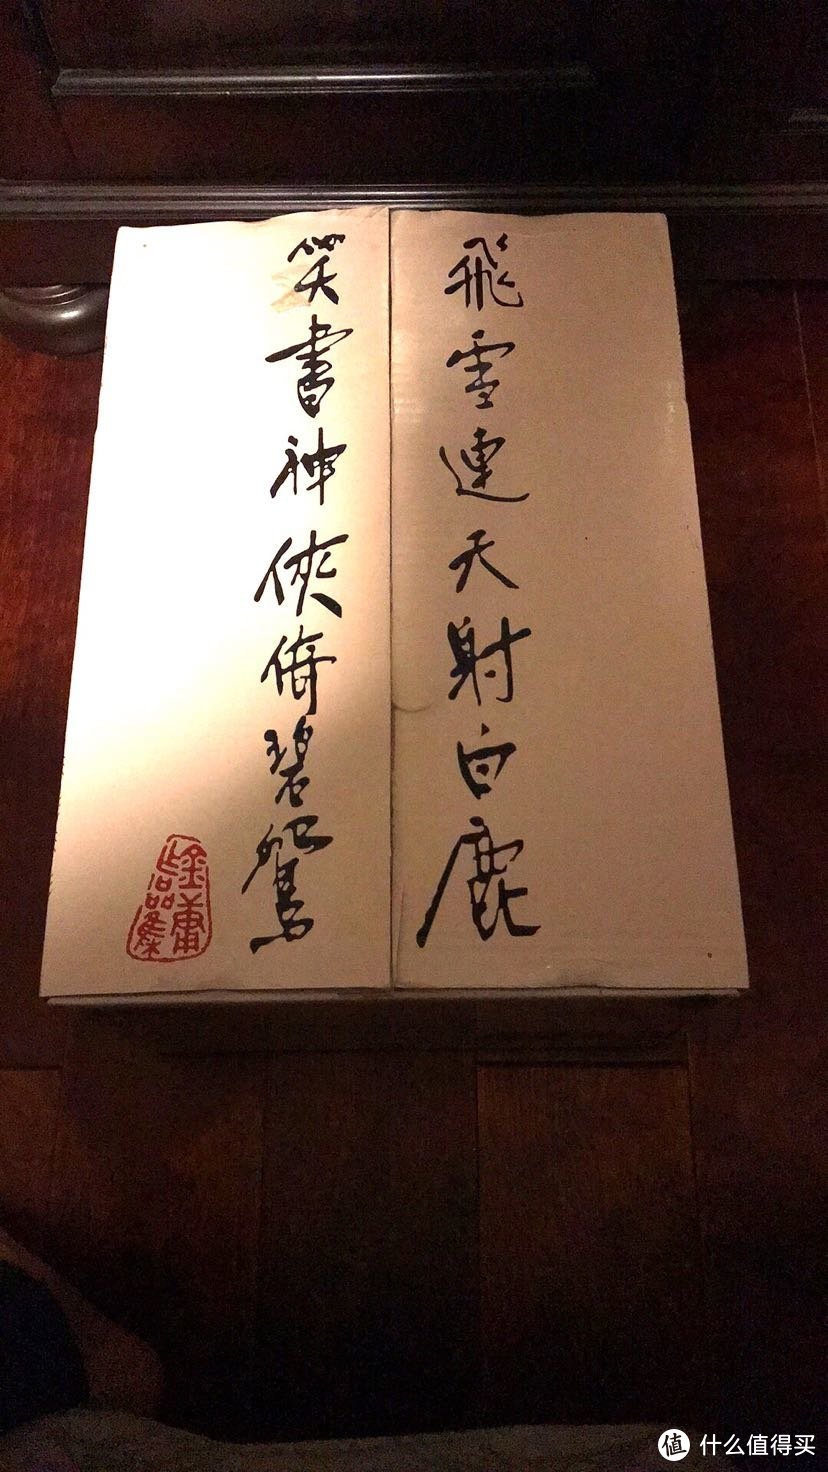 飛雪連天射白鹿
笑書神俠倚碧鴛
金庸
作品集
值 什么值得买